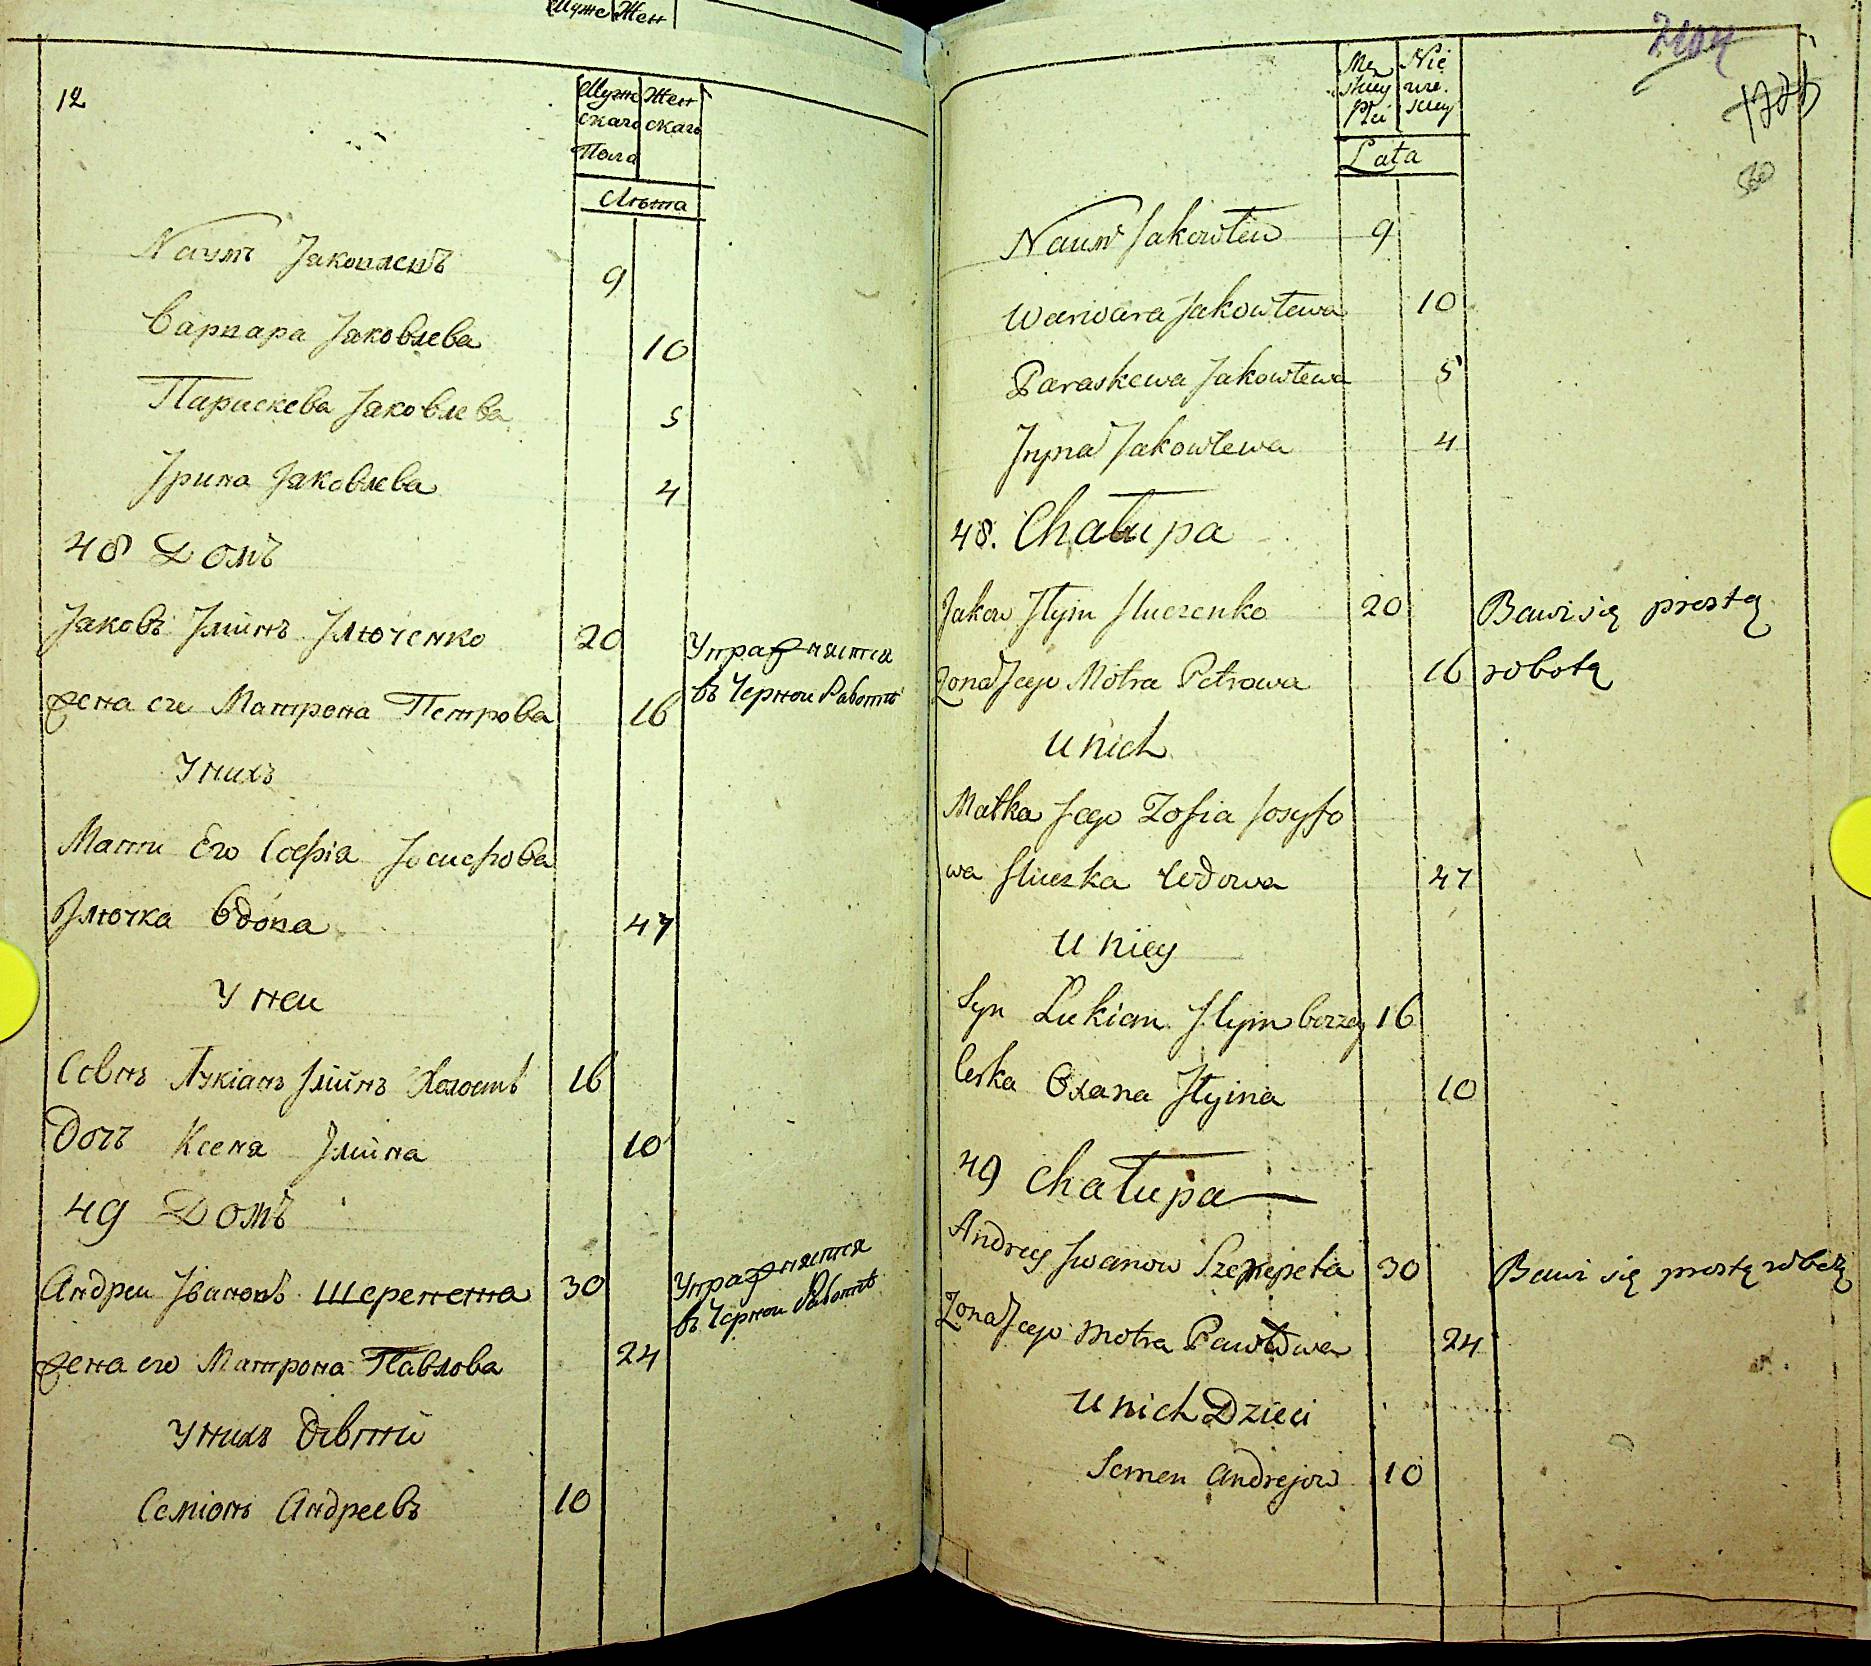 Муже Жен
12
Муже Жен
скаго скаго
Пола
Лѣта
Наумъ Јаковлевъ 9
Варвара Јаковлева 10
Параскева Јаковлева 5
Јрина Јаковлева 4
48 Домъ
Јаковъ Јлїинъ Јлюченко 20 Упражняется
жена его Матрона Петрова 16 въ Черной Работѣ
У нихъ
Мати Его Софія Јосифова
Јлючка Вдова 47
У неи
Сынъ Лукіанъ Јлїинъ Холостъ 16
Дочъ Ксеня Јлїина 10
49 Домъ
Андреи Јвановъ Шерепета 30 Упражняется
въ Черной Работѣ
жена его Матрона Павлова 24
У нихъ Дѣвтѣй
Семіонъ Андреевъ 10
Męz Nie
skiey wie.
płci skiey
Lata
Naum Jakowlew 9
Warwara Jakowlewa 10
Paraskewa Jakowlewa 5
Jryna Jakowlewa 4
48. Chałupa
Jakow Jłyin Jluczenko 20 Bawi się prostą
Żona Jego Motra Petrowa 16 robotą
U nich
Matka Jego Zofia Josyfo
wa Jluczka Wdowa 47
U niey
Syn Lukian Jlyin bezżeń 16
Cerka Oxana Jłyina 10
49 Chałupa
Andrey Jwanow Szerepeta 30 Bawi się prostą robotą
Żona Jego Motra Pawłowa 24
U nich Dzieci
Semen Andrejow 10